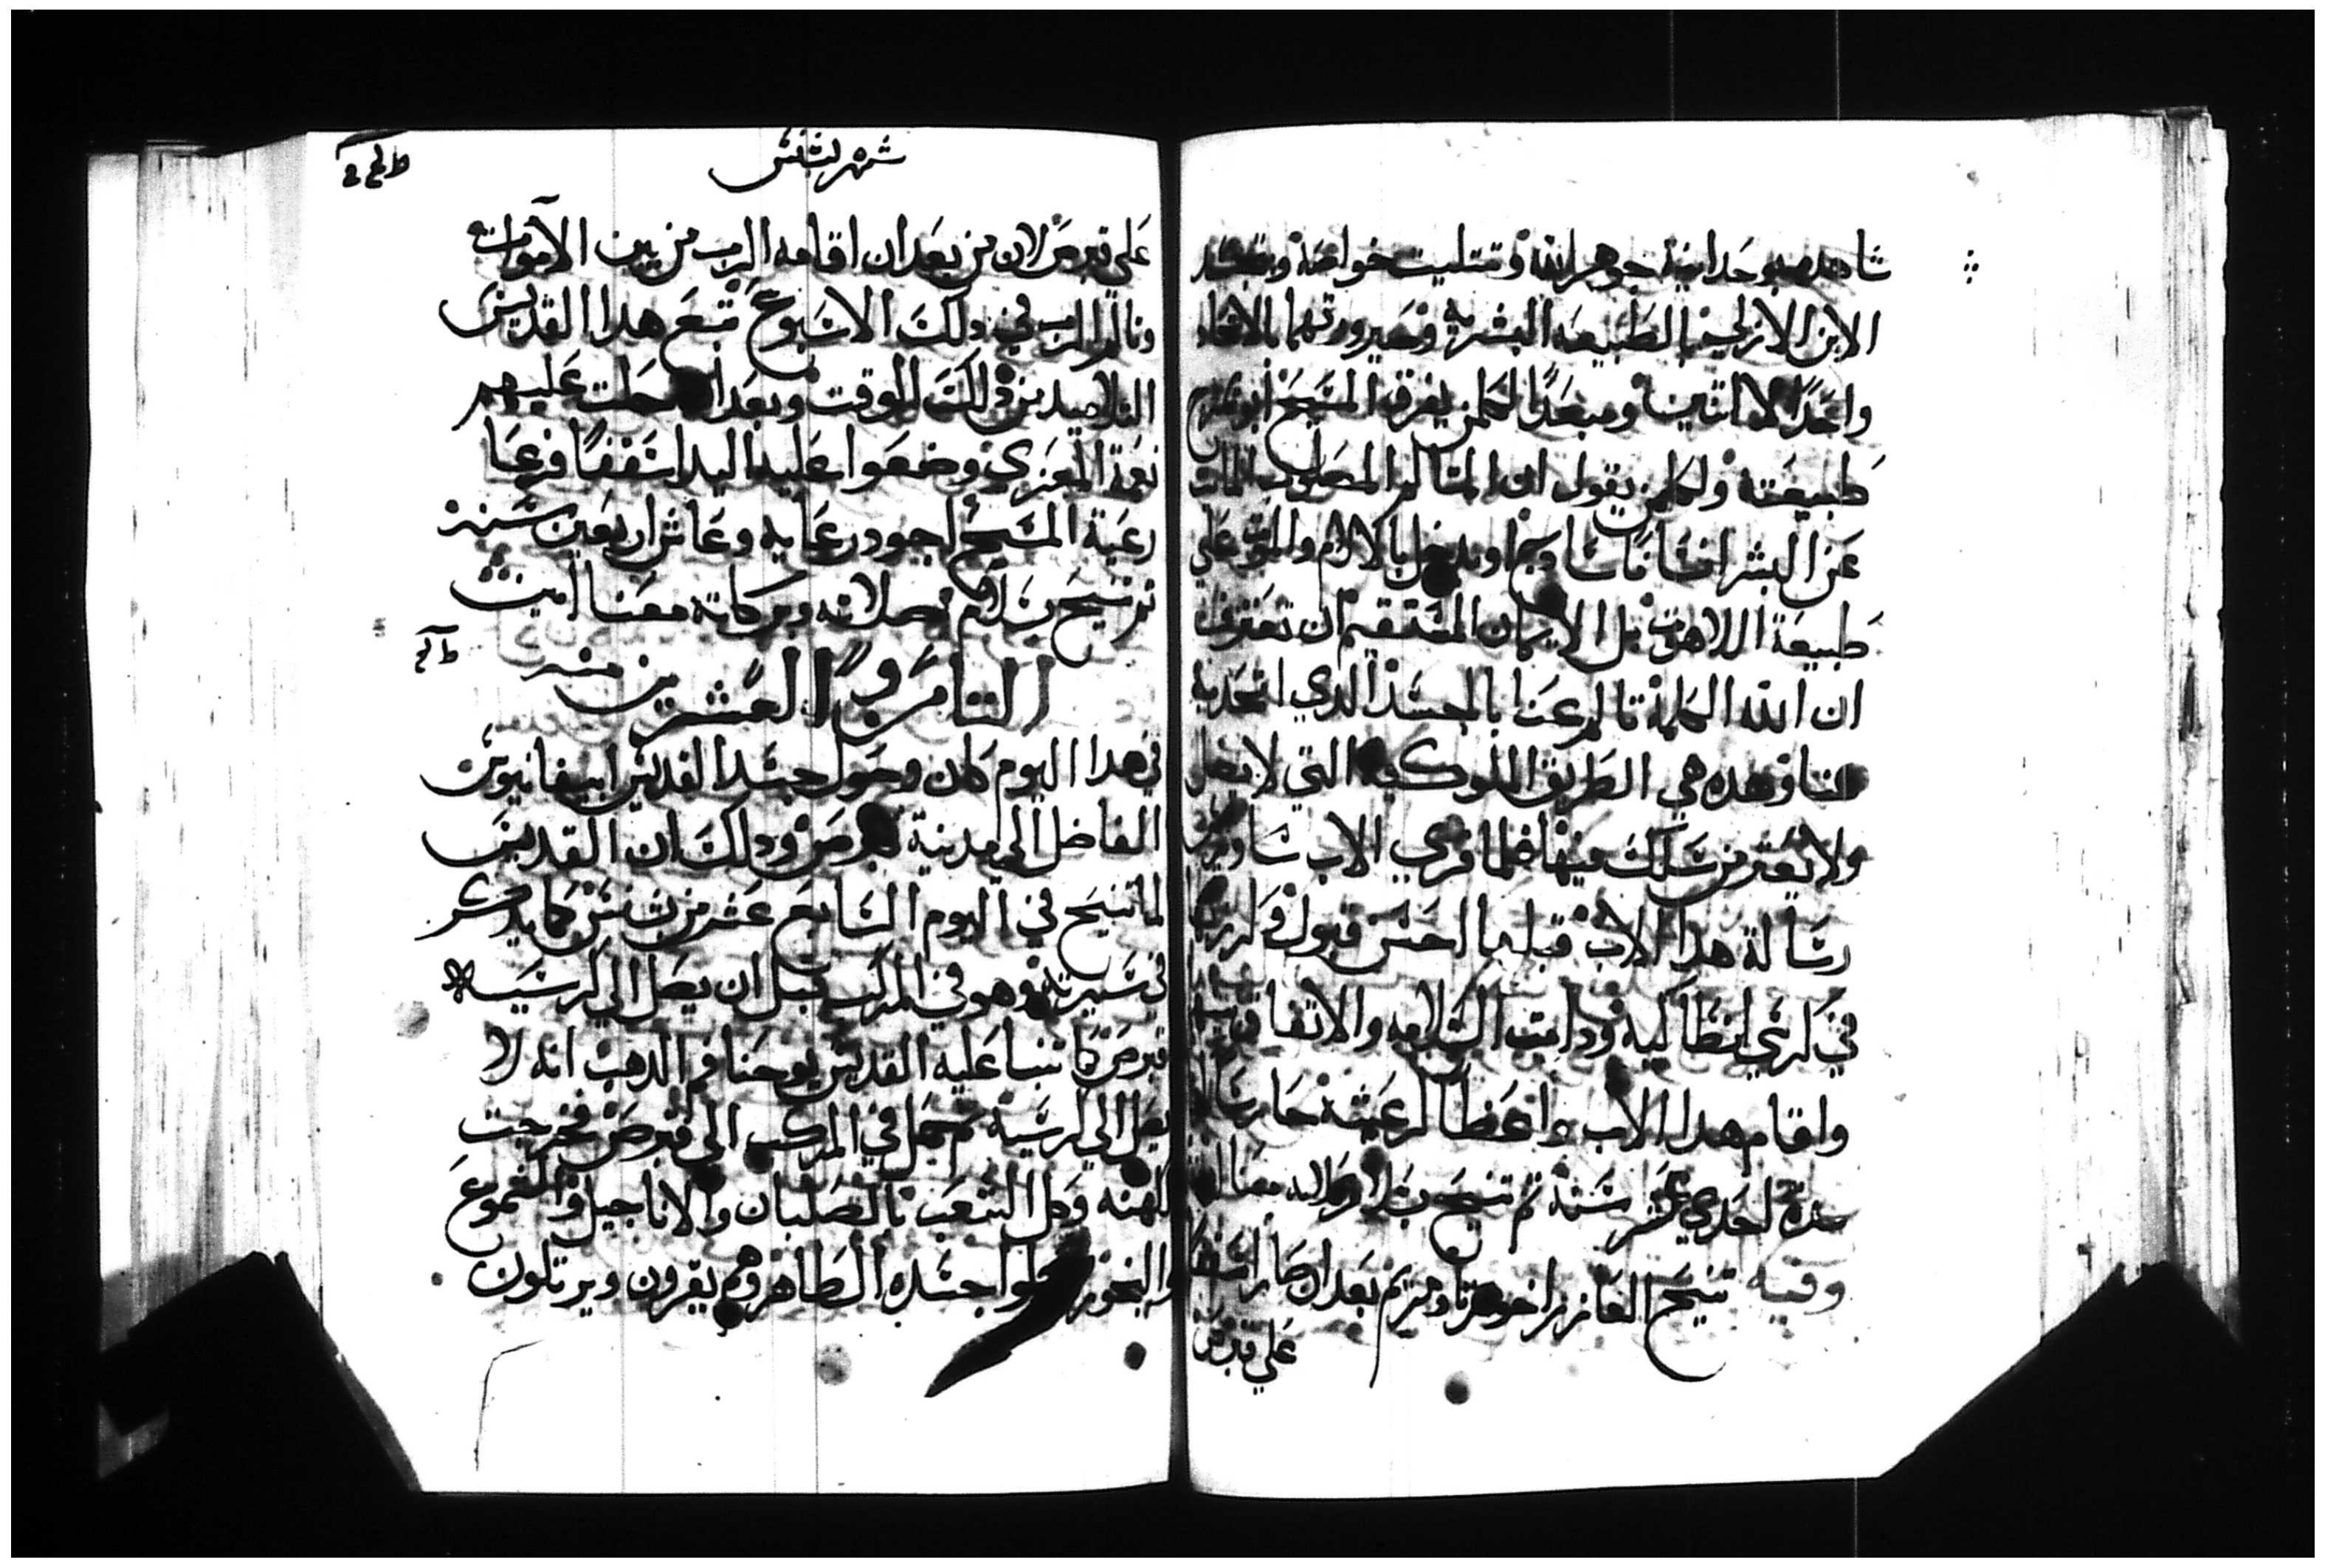 شاهد فيه بوحدانية جوهر الله وتتليت خواصه وبتجسد
الابن الازلي بالطبيعه البشريه وتصيرورتهما بالاتحاد
واحدًا لا اتنين ومبعدًا لكلمن يفرق المسيح
طبيعته ولكلمن يقول ان المتالم المصلوب المات
عن البشر انسانا سادجًا ويدخل الالام والموت علي
طبيعة اللاهوت بل الايمان المستقيم ان نعترف
ان الله الكلمة تالم عنا بالجسد الدي اتحد به
منا وهده هي الطريق الملوكيه التي لا يضل
ولا يعتر من سلك فيها فلما قري الاب ساويرس
رسالة هدا الاب قبلها احسن قبول وكرزبها
في كرسي انطاكيه ودامت السلامه والاتفاق
واقام هدا الاب واعظا لرعيته حارسا
مدة احدي عشر سنة تم تنيح بسلام صلاته معنا
وفيه تنيح العازر اخو مرتا ومريم بعد ان صار اسقفا
علي قبرص
شهر بشنس
علي قبرص لان من بعد ان اقامه الرب من بين الاموات
وتالم الرب في دلك الاسبوع تبع هدا القديس
التلاميد من دلك الوقت وبعد ان حلت عليهم
نعمة المعزي وضعوا عليه اليد اسقفًا فرعا
رعية المسيح اجود رعايه وعاش اربعين سنه
تم تنيح بسلام صلاته وبركاته معنا امين
التامن والعشرين منه
في هدا اليوم كان وصول جسد القديس ابيفانيوس
الفاضل الي مدينة قبرص ودلك ان القديس
لما تنيح في اليوم السابع عشر من بشنس كما يدكر
في سيرته وهو في المركب قبل ان يصل الي كرسيه
قبرص كما تنبا عليه القديس يوحنا فم الدهب انه لا
يصل الي كرسيه حمل في المركب الي قبرص فخرجت
الكهنه وكل الشعب بالصلبان والاناجيل والشموع
والبخور وحملوا جسده الطاهر وهم يقرون ويرتلون